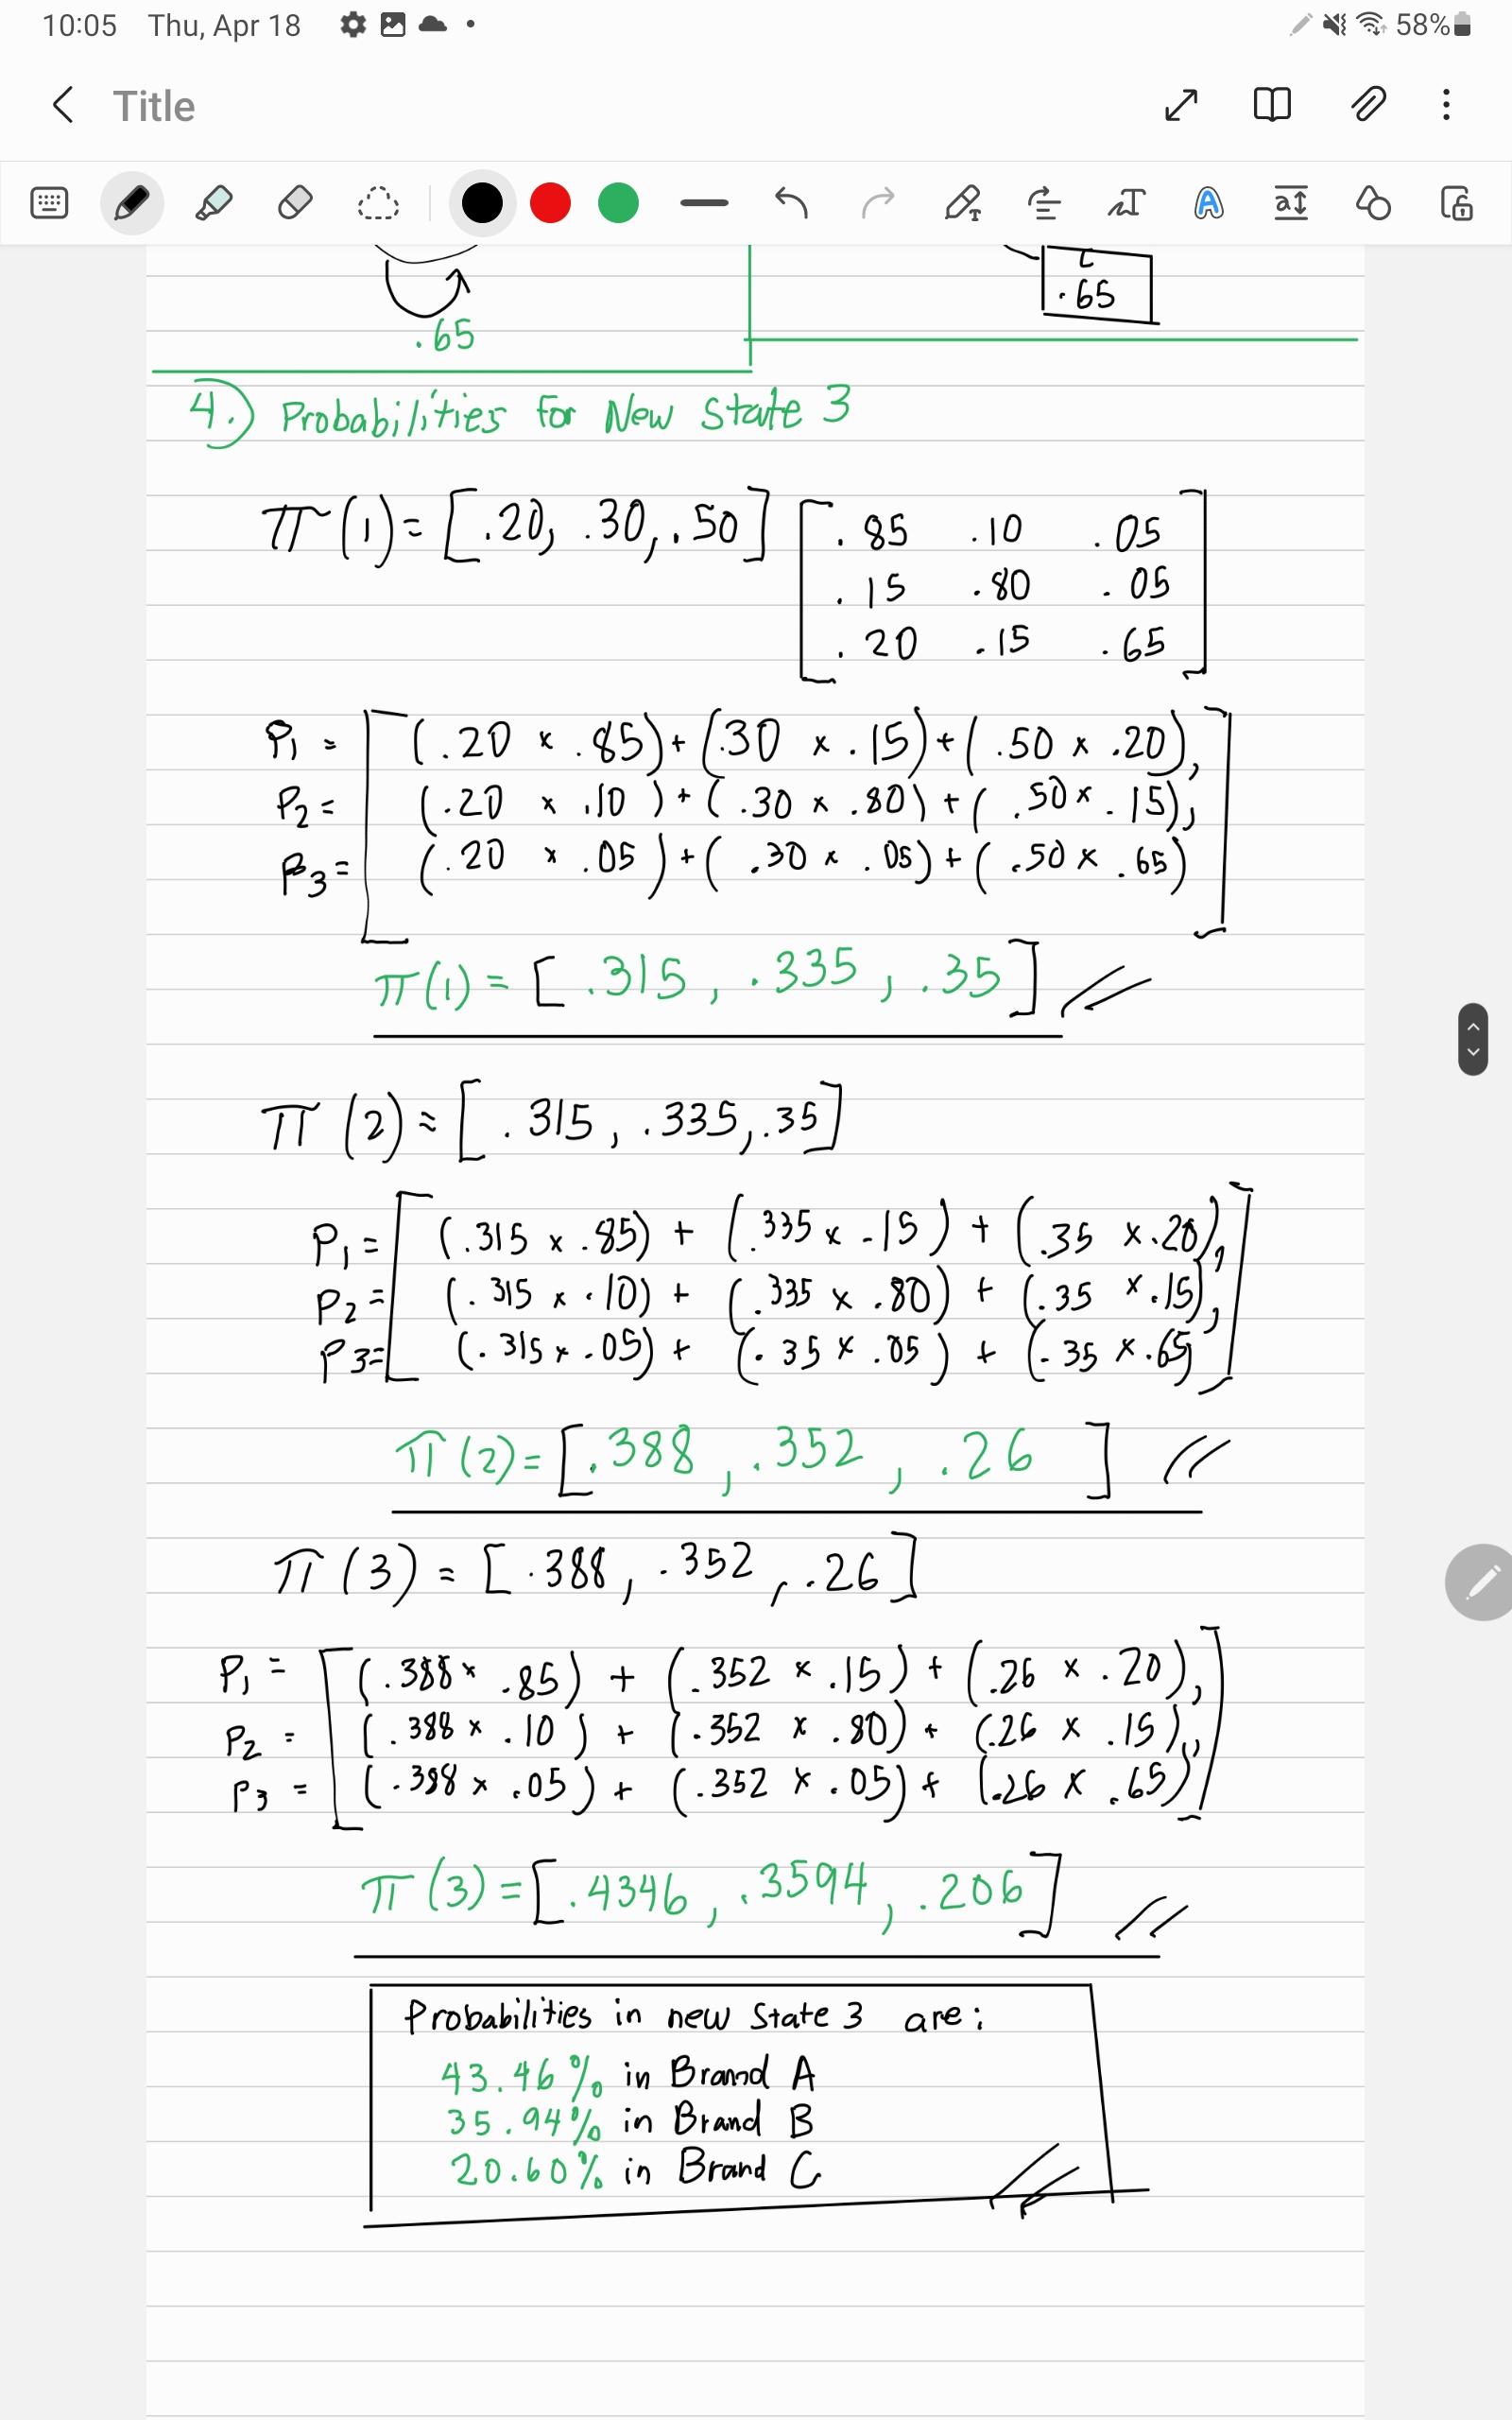 10:05 Thu, Apr 18 58%
Title
.65
C
.65
4.) Probabilities for New State 3
π(1) = [.20, .30, .50] [.85 .10 .05
.15 .80 .05
.20 .15 .65]
P1 = [(.20 x .85) + (.30 x .15) + (.50 x .20),
P2 = (.20 x .10) + (.30 x .80) + (.50 x .15),
P3 = (.20 x .05) + (.30 x .05) + (.50 x .65)]
π(1) = [.315, .335, .35]
π(2) = [.315, .335, .35]
P1 = [(.315 x .85) + (.335 x .15) + (.35 x .20),
P2 = (.315 x .10) + (.335 x .80) + (.35 x .15),
P3 = (.315 x .05) + (.35 x .05) + (.35 x .65)]
π(2) = [.388, .352, .26]
π(3) = [.388, .352, .26]
P1 = [(.388 x .85) + (.352 x .15) + (.26 x .20),
P2 = (.388 x .10) + (.352 x .80) + (.26 x .15),
P3 = (.388 x .05) + (.352 x .05) + (.26 x .65)]
π(3) = [.4346, .3594, .206]
Probabilities in new state 3 are:
43.46% in Brand A
35.94% in Brand B
20.60% in Brand C